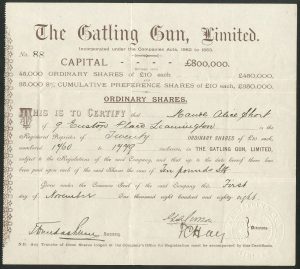 The Gatling Gun, Limited.
Incorporated under the Companies Acts, 1862 to 1883.
No. 88
CAPITAL - - - - £800,000.
45,000 ORDINARY SHARES of £10 each £450,000.
35,000 8% CUMULATIVE PREFERENCE SHARES of £10 each, £350,000.
ORDINARY SHARES.
THIS IS TO CERTIFY that Maude Alice Short
of 9 Euston Place Leamington is the
Registered Proprietor of Twenty ORDINARY SHARES of £10 each,
numbered 1960 to 1979 inclusive, in THE GATLING GUN, LIMITED,
subject to the Regulations of the said Company, and that up to the date hereof there has
been paid upon each of the said Shares the sum of Ten pounds Stg
Given under the Common Seal of the said Company this First
day of November One thousand eight hundred and eighty eight
Secretary.
Directors.
N.B. Any Transfer of these Shares lodged at the Company's Office for Registration must be accompanied by this Certificate.